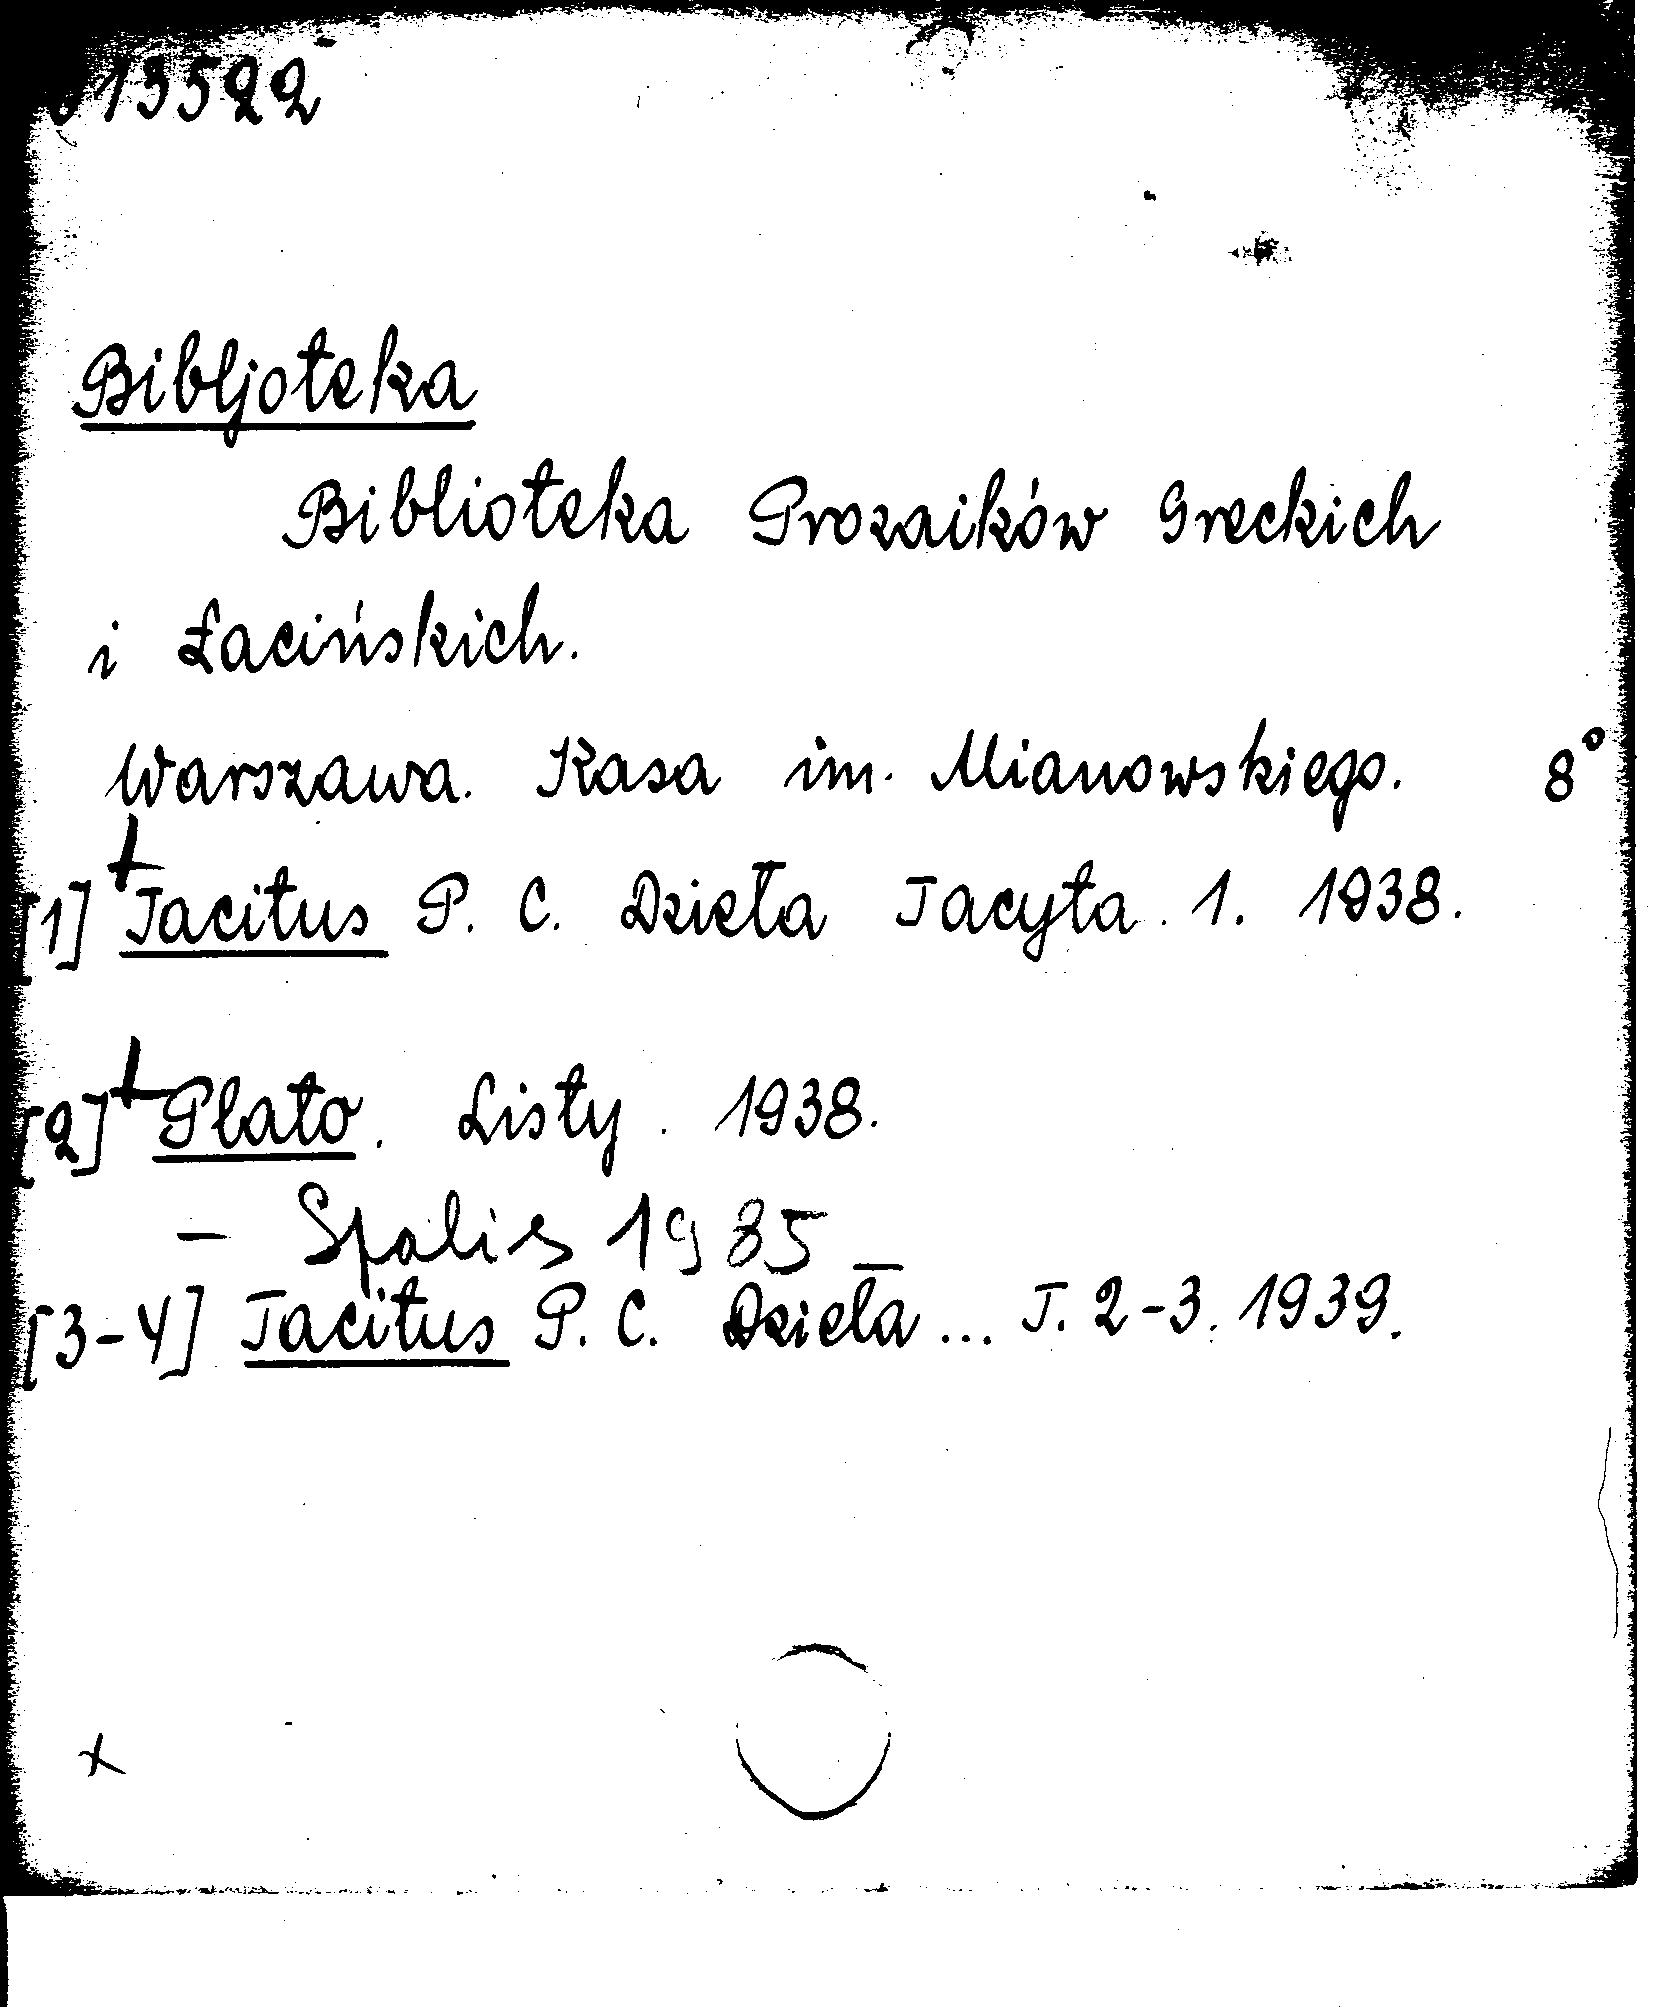 13522
Bibljoteka
Biblioteka Prozaików Greckich
i Łacińskich.
Warszawa. Kasa im. Mianowskiego. 8°
[1] + Tacitus P. C. Dzieła Tacyta. 1. 1938.
[2] + Plato. Listy. 1938.
- 1985 -
[3-4] Tacitus P. C. Dzieła ... T. 2-3. 1939.
x